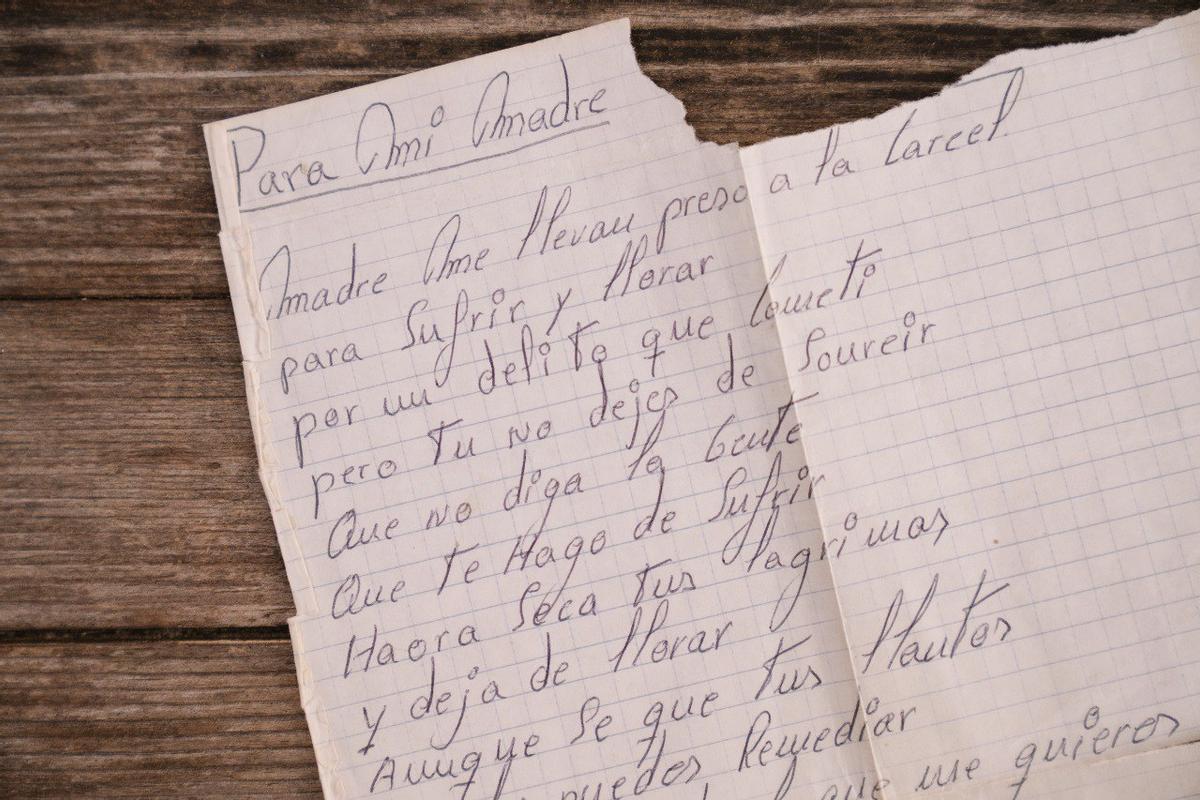 Para Mi Madre
Madre Me llevan preso a la Carcel.
para Sufrir y llorar
por un delito que Cometi
pero Tu no dejes de Sonreir
Que no diga la Gente
Que Te Hago de Sufrir
Haora Seca Tus lagrimas
y deja de llorar
Aunque Se que Tus llantos
puedes Remediar
que me quieres